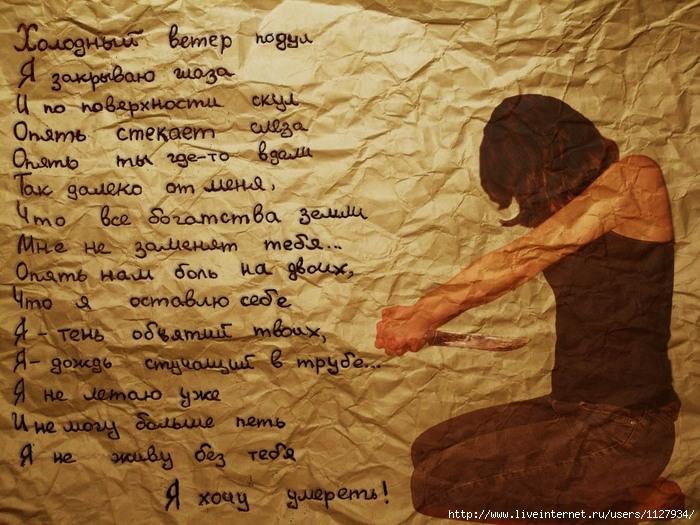 Холодный ветер подул
Я закрываю глаза
И по поверхности скул
Опять стекает слеза
Опять ты где-то вдали
Так далеко от меня,
Что все богатства земли
Мне не заменят тебя...
Опять нам боль на двоих,
Что я оставлю себе
Я - тень объятий твоих,
Я - дождь стучащий в трубе...
Я не летаю уже
И не могу больше петь
Я не живу без тебя
Я хочу умереть!
http://www.liveinternet.ru/users/1127934/